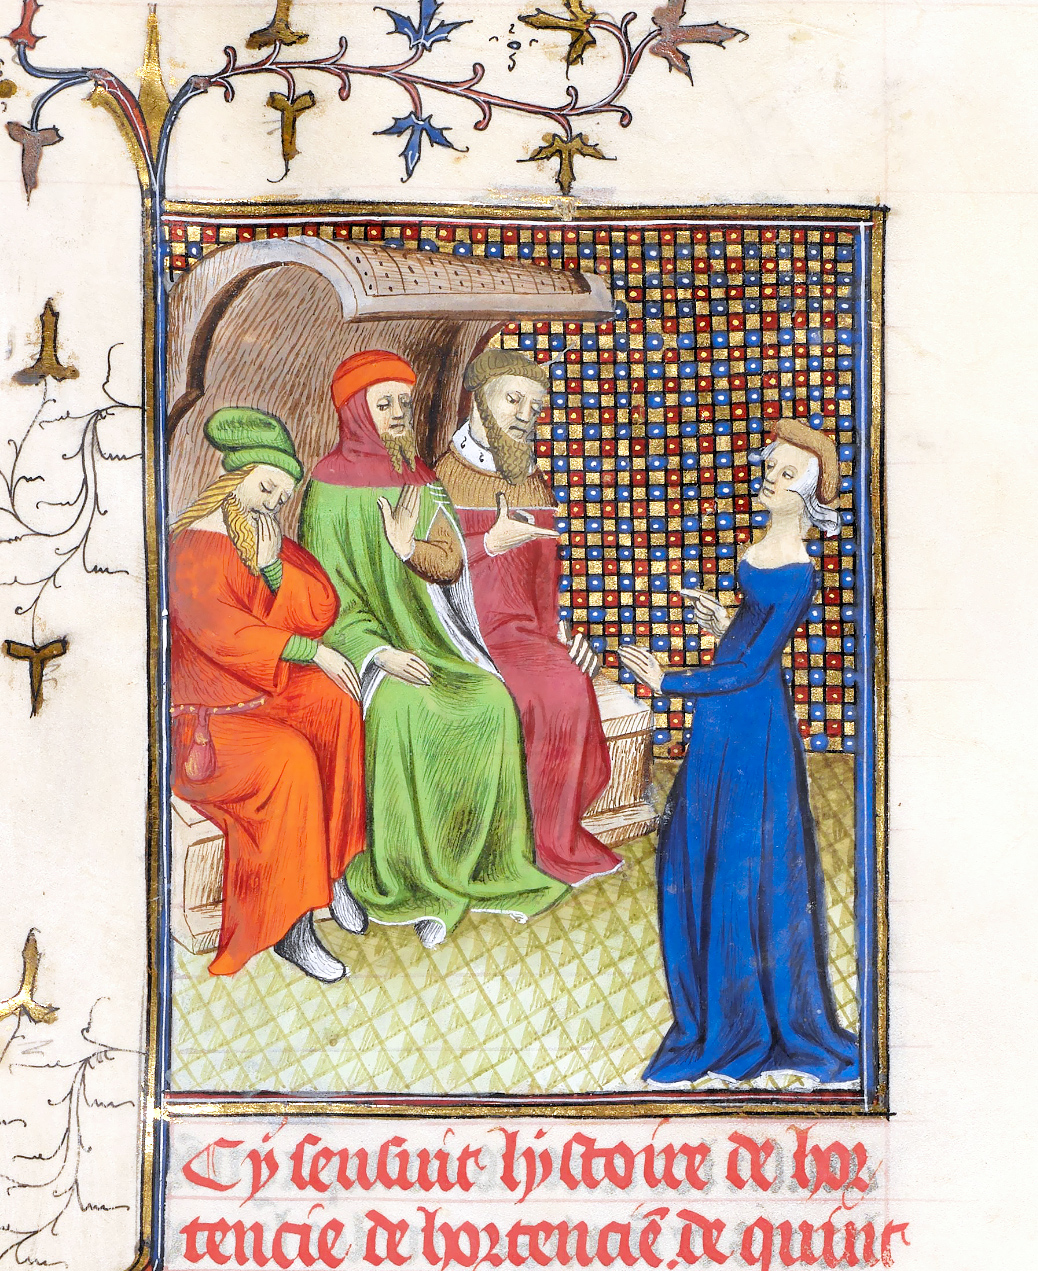 Cy sensuit hystoire de hor
tencie de hortenciē. de quint